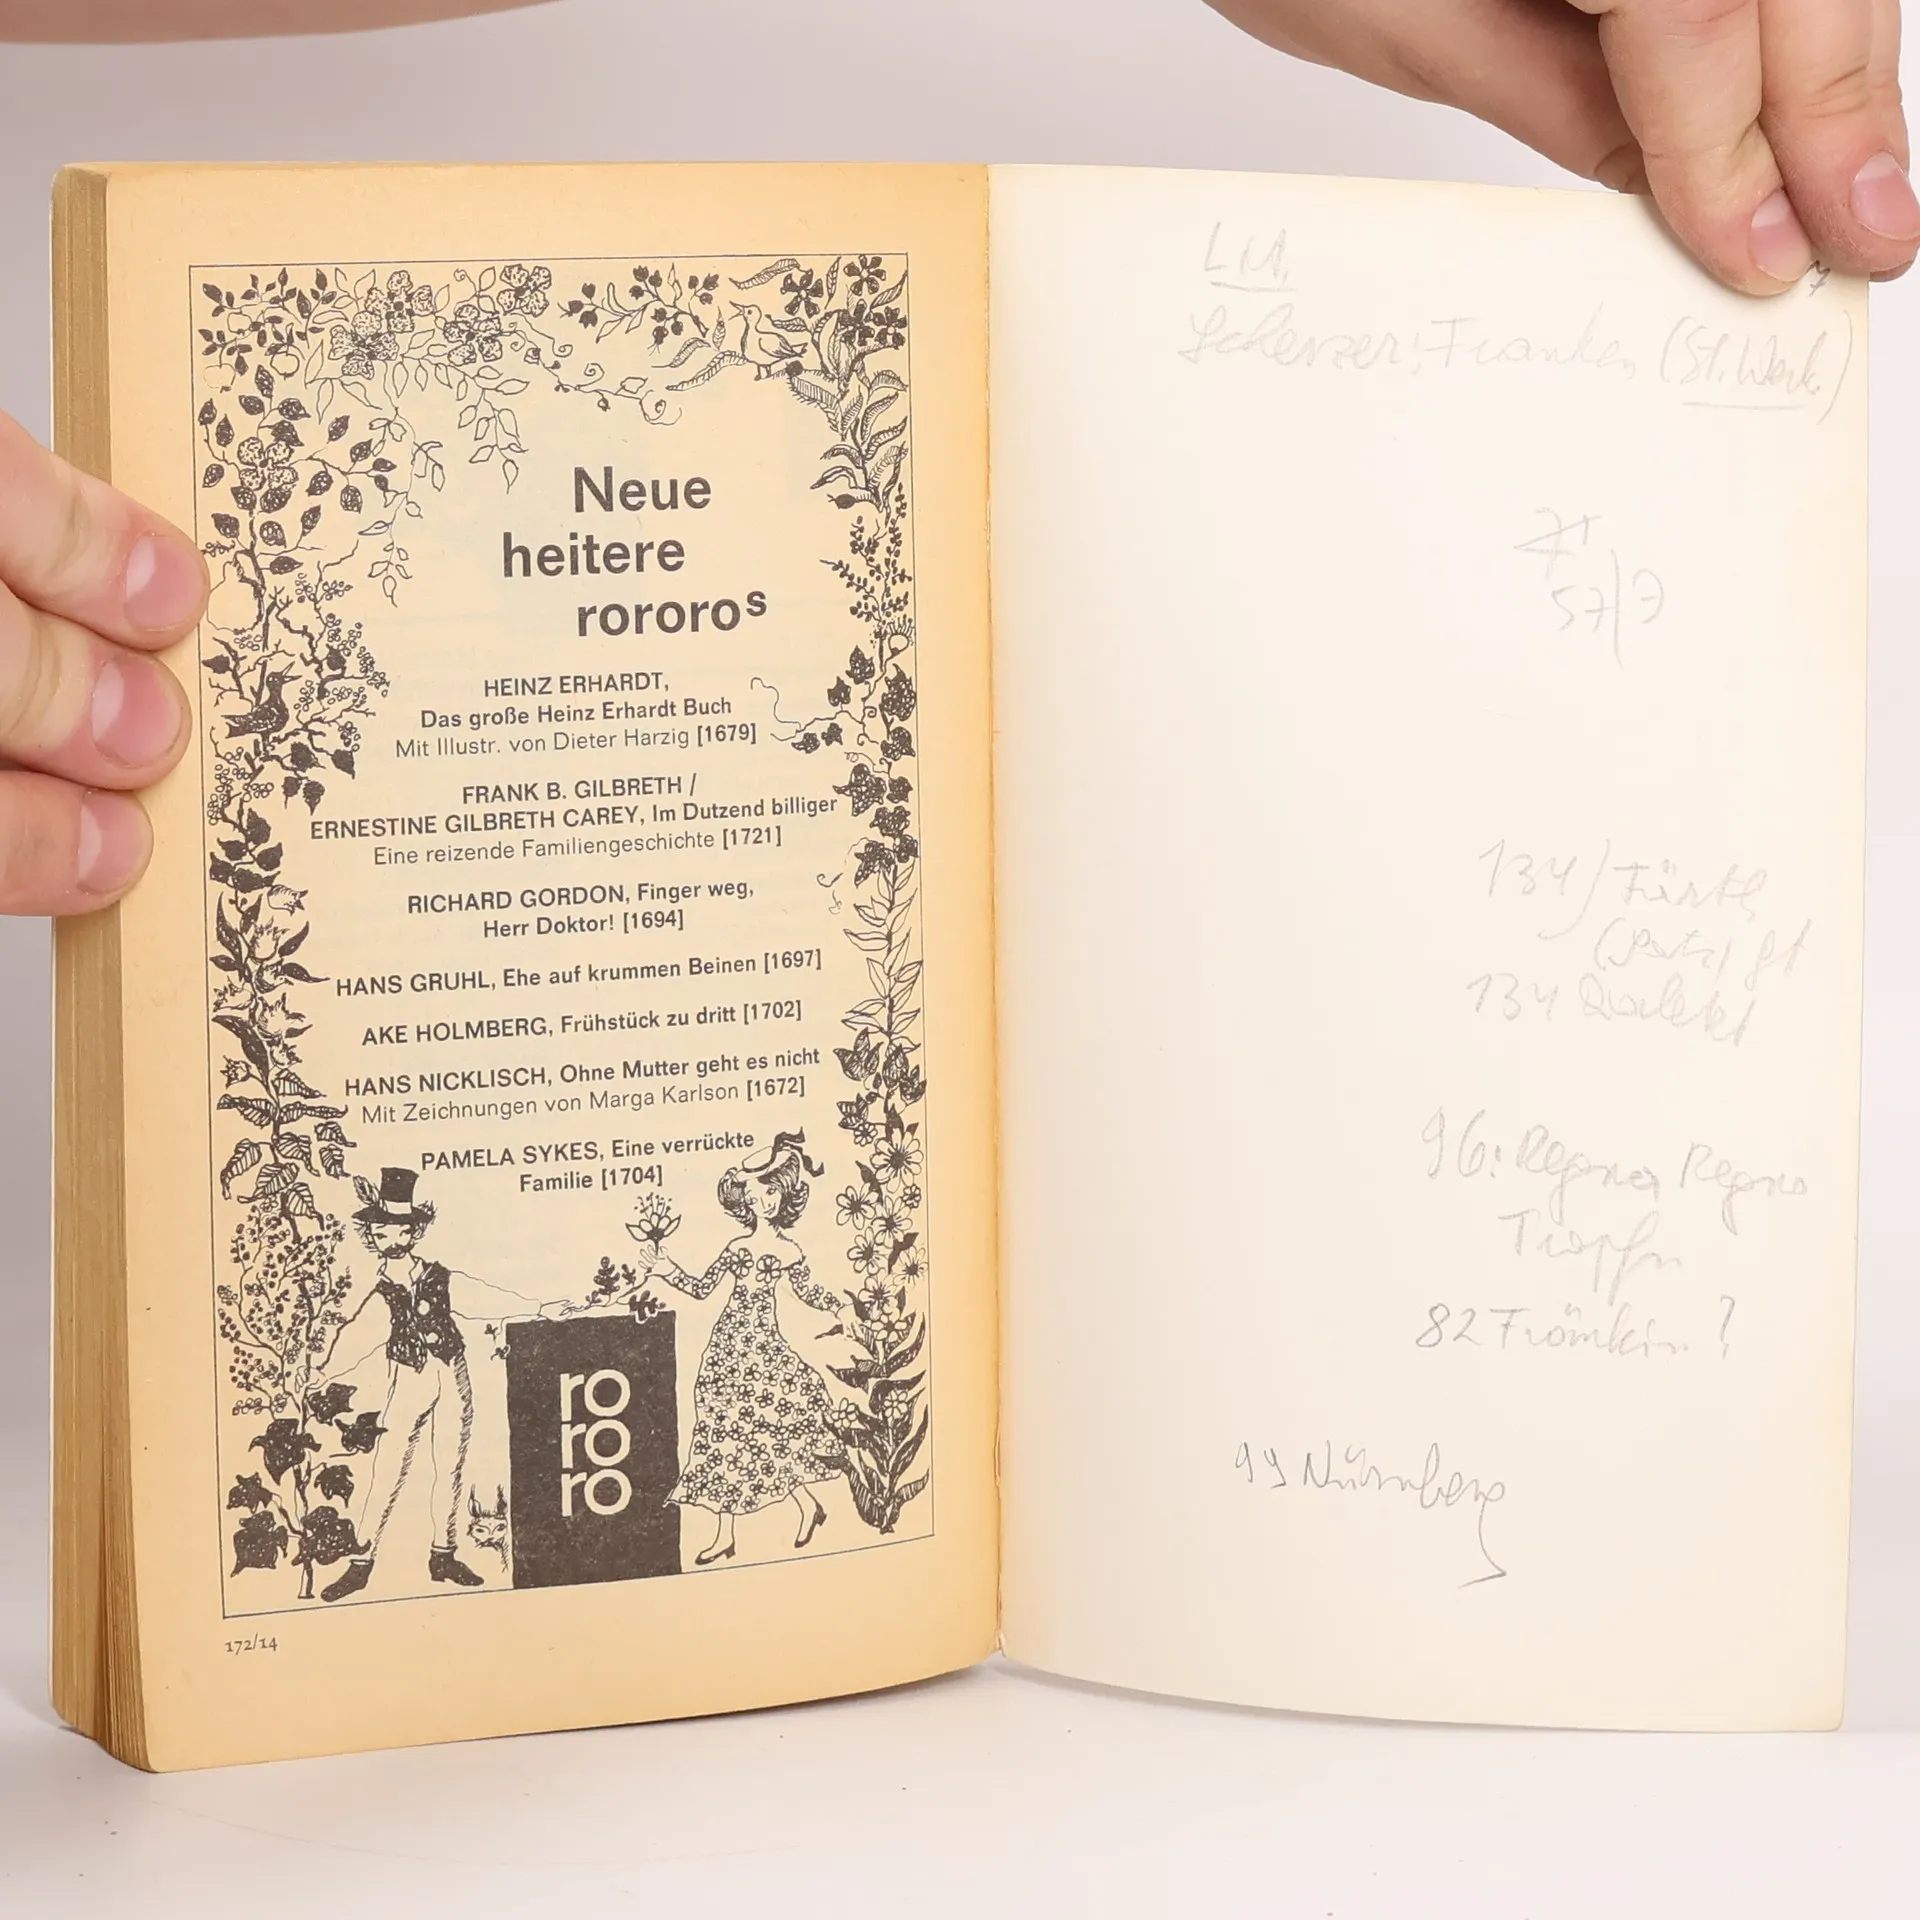 Neue
heitere
rororos
HEINZ ERHARDT,
Das große Heinz Erhardt Buch
Mit Illustr. von Dieter Harzig [1679]
FRANK B. GILBRETH /
ERNESTINE GILBRETH CAREY, Im Dutzend billiger
Eine reizende Familiengeschichte [1721]
RICHARD GORDON, Finger weg,
Herr Doktor! [1694]
HANS GRUHL, Ehe auf krummen Beinen [1697]
AKE HOLMBERG, Frühstück zu dritt [1702]
HANS NICKLISCH, Ohne Mutter geht es nicht
Mit Zeichnungen von Marga Karlson [1672]
PAMELA SYKES, Eine verrückte
Familie [1704]
ro
ro
ro
172/14
Franken
57/7
134) Fürth
134 Dialekt
96:
Tropfen
82 Fränkin ?
99 Nürnberg